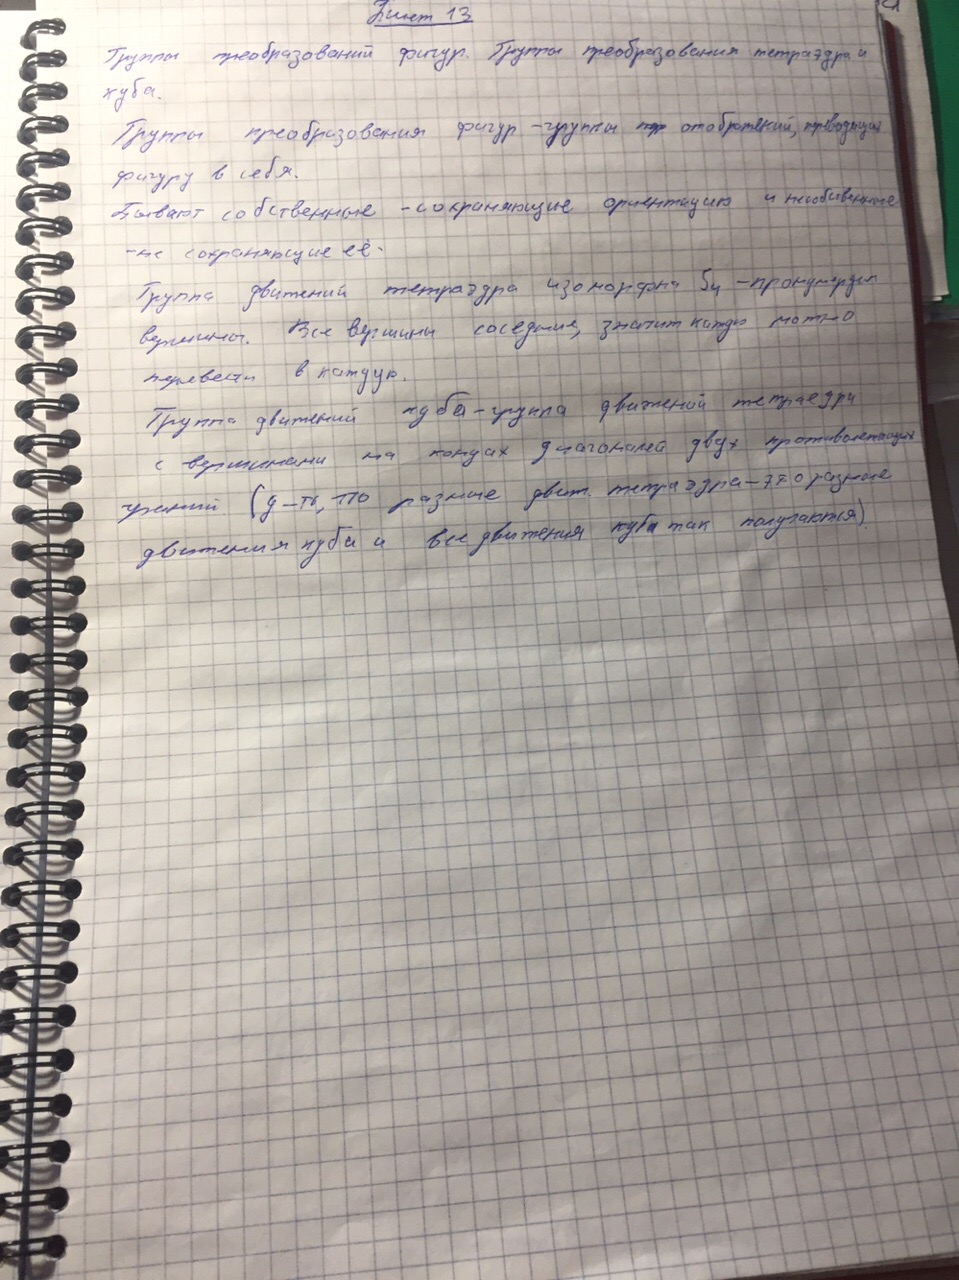 Билет 13
Группы преобразований фигур. Группы преобразования тетраэдра и
куба.
Группы преобразования фигур - группы отображений, приводящих
фигуру в себя.
Бывают собственные - сохраняющие ориентацию и несобственные
- не сохраняющие её.
Группа движений тетраэдра изоморфна S4 - пронумеруем
вершины. Все вершины соседние, значит каждую можно
перевести в каждую.
Группа движений куба - группа движений тетраедра
с вершинами на концах диагоналей двух противолежащих
граний (д-ть, что разные движ. тетраэдра - это разные
движения куба и все движения куба так получаются).